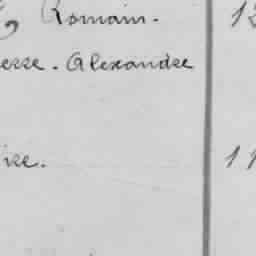 Romain. 12
erre. Alexandre
ire. 11